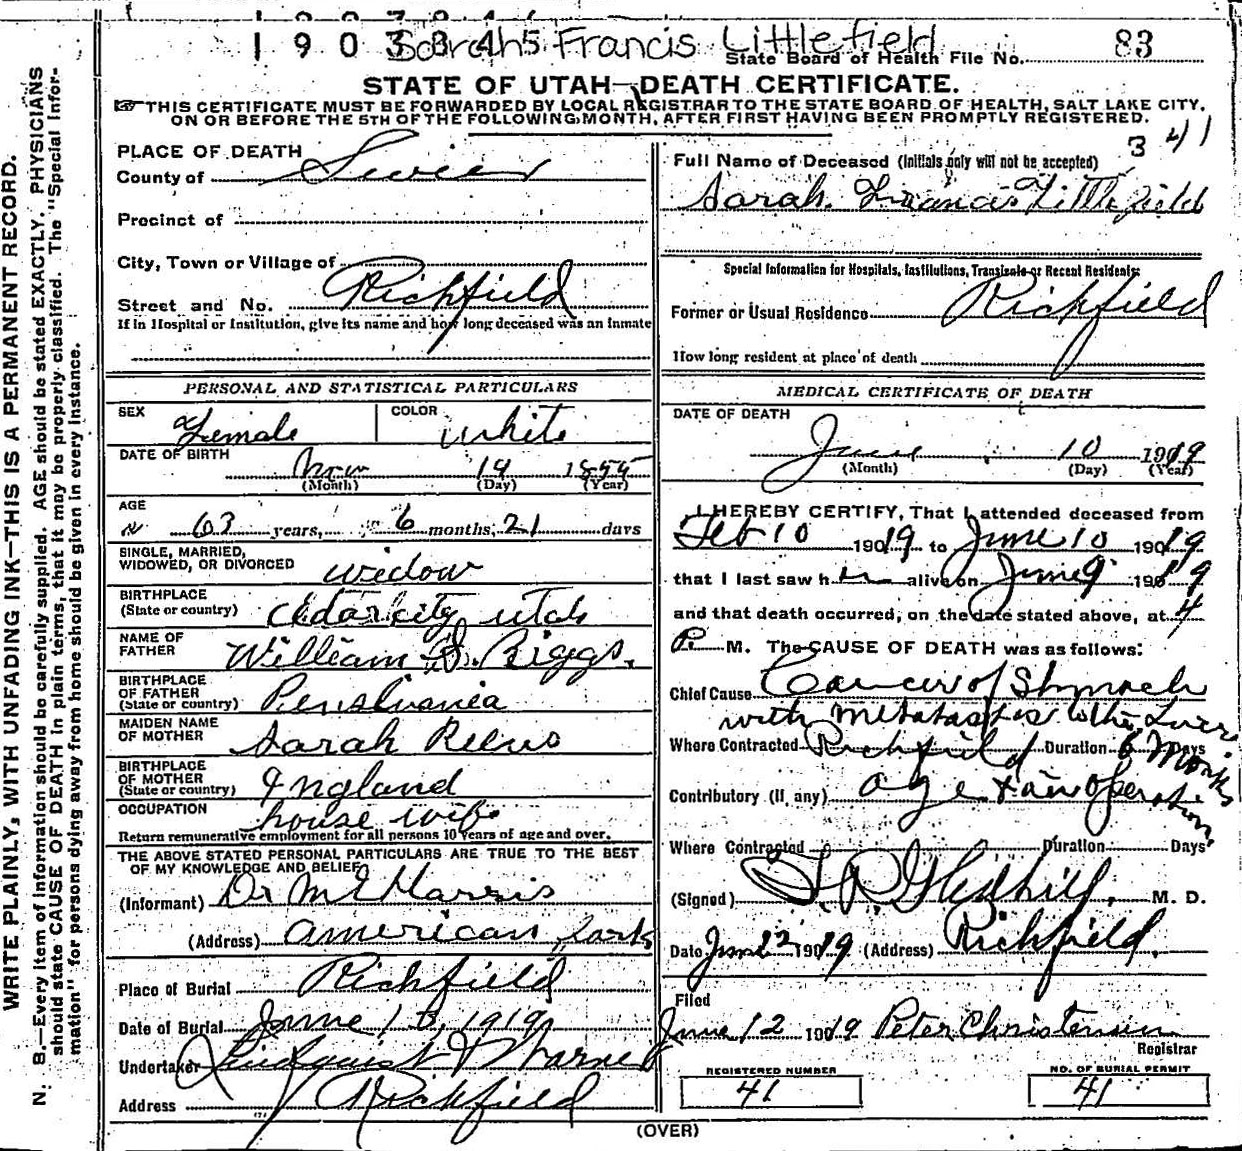 1903345
Sarah Francis Littlefield
State Board of Health File No. 83
STATE OF UTAH—DEATH CERTIFICATE.
THIS CERTIFICATE MUST BE FORWARDED BY LOCAL REGISTRAR TO THE STATE BOARD OF HEALTH, SALT LAKE CITY,
ON OR BEFORE THE 5TH OF THE FOLLOWING MONTH, AFTER FIRST HAVING BEEN PROMPTLY REGISTERED.
WRITE PLAINLY, WITH UNFADING INK—THIS IS A PERMANENT RECORD.
N. B.—Every item of information should be carefully supplied. AGE should be stated EXACTLY. PHYSICIANS
should state CAUSE OF DEATH in plain terms, that it may be properly classified. The "Special Infor-
mation" for persons dying away from home should be given in every instance.
PLACE OF DEATH
County of Sevier
Precinct of
City, Town or Village of
Street and No. Richfield
If in Hospital or Institution, give its name and how long deceased was an inmate
PERSONAL AND STATISTICAL PARTICULARS
SEX Female COLOR White
DATE OF BIRTH
Nov 19 1855
(Month) (Day) (Year)
AGE
63 years, 6 months, 21 days
SINGLE, MARRIED,
WIDOWED, OR DIVORCED widow
BIRTHPLACE
(State or country) Cedar city utah
NAME OF
FATHER William S. Riggs.
BIRTHPLACE
OF FATHER
(State or country) Penslvania
MAIDEN NAME
OF MOTHER Sarah
BIRTHPLACE
OF MOTHER
(State or country) England
OCCUPATION
house wife
Return remunerative employment for all persons 10 years of age and over.
THE ABOVE STATED PERSONAL PARTICULARS ARE TRUE TO THE BEST
OF MY KNOWLEDGE AND BELIEF
(Informant) Dr M E Harris
(Address) American fork
Place of Burial Richfield
Date of Burial June 13, 1919
Undertaker Lindquist &
Address Richfield
3 41
Full Name of Deceased (Initials only will not be accepted)
Sarah Francis Littlefield
Special Information for Hospitals, Institutions, Transients or Recent Residents:
Former or Usual Residence Richfield
How long resident at place of death
MEDICAL CERTIFICATE OF DEATH
DATE OF DEATH
June 10 1919
(Month) (Day) (Year)
I HEREBY CERTIFY, That I attended deceased from
Feb 10 1919 to June 10 1919
that I last saw her alive on June 9 1919
and that death occurred, on the date stated above, at 4
P. M. The CAUSE OF DEATH was as follows:
Chief Cause Cancer of Stomach
with Metatastis to the Liver
Where Contracted Richfield Duration 6 Months Days
Contributory (If any) age & an operation
Where Contracted Duration Days
(Signed) J. R. Gledhill, M. D.
Date June 12 1919 (Address) Richfield.
Filed
June 12 1919 Peter Christensen
Registrar
REGISTERED NUMBER
41
NO. OF BURIAL PERMIT
41
(OVER)